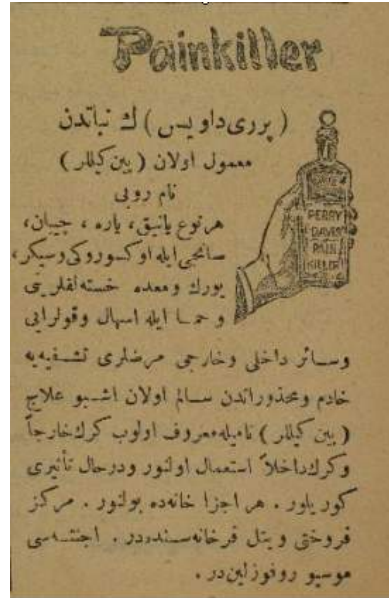 Painkiller
( پرری داویس ) ك نباتدن
معمول اولان ( پین کیللر )
نام روبی
هر نوع یانیق، یاره ، چیبان،
سانجی ایله اوکسوروکی و سیکر،
یورك و معده خسته لقلرینی
و حما ایله اسهال و قولرایی
PERRY
DAVIS
PAIN
KILLER
وسائر داخلی و خارجی مرضلری تشفیه یه
خادم و محذوراتدن سالم اولان اشبو علاج
( پین کیللر ) نامیله معروف اولوب کرك خارجاً
و کرك داخلاً استعمال اولنور و درحال تأثیری
کوریلور . هر اجزا خانه ده بولنور . مرکز
فروختی ویتل فرخانه سنده در . اجنته سی
موسیو روفوزلین در .